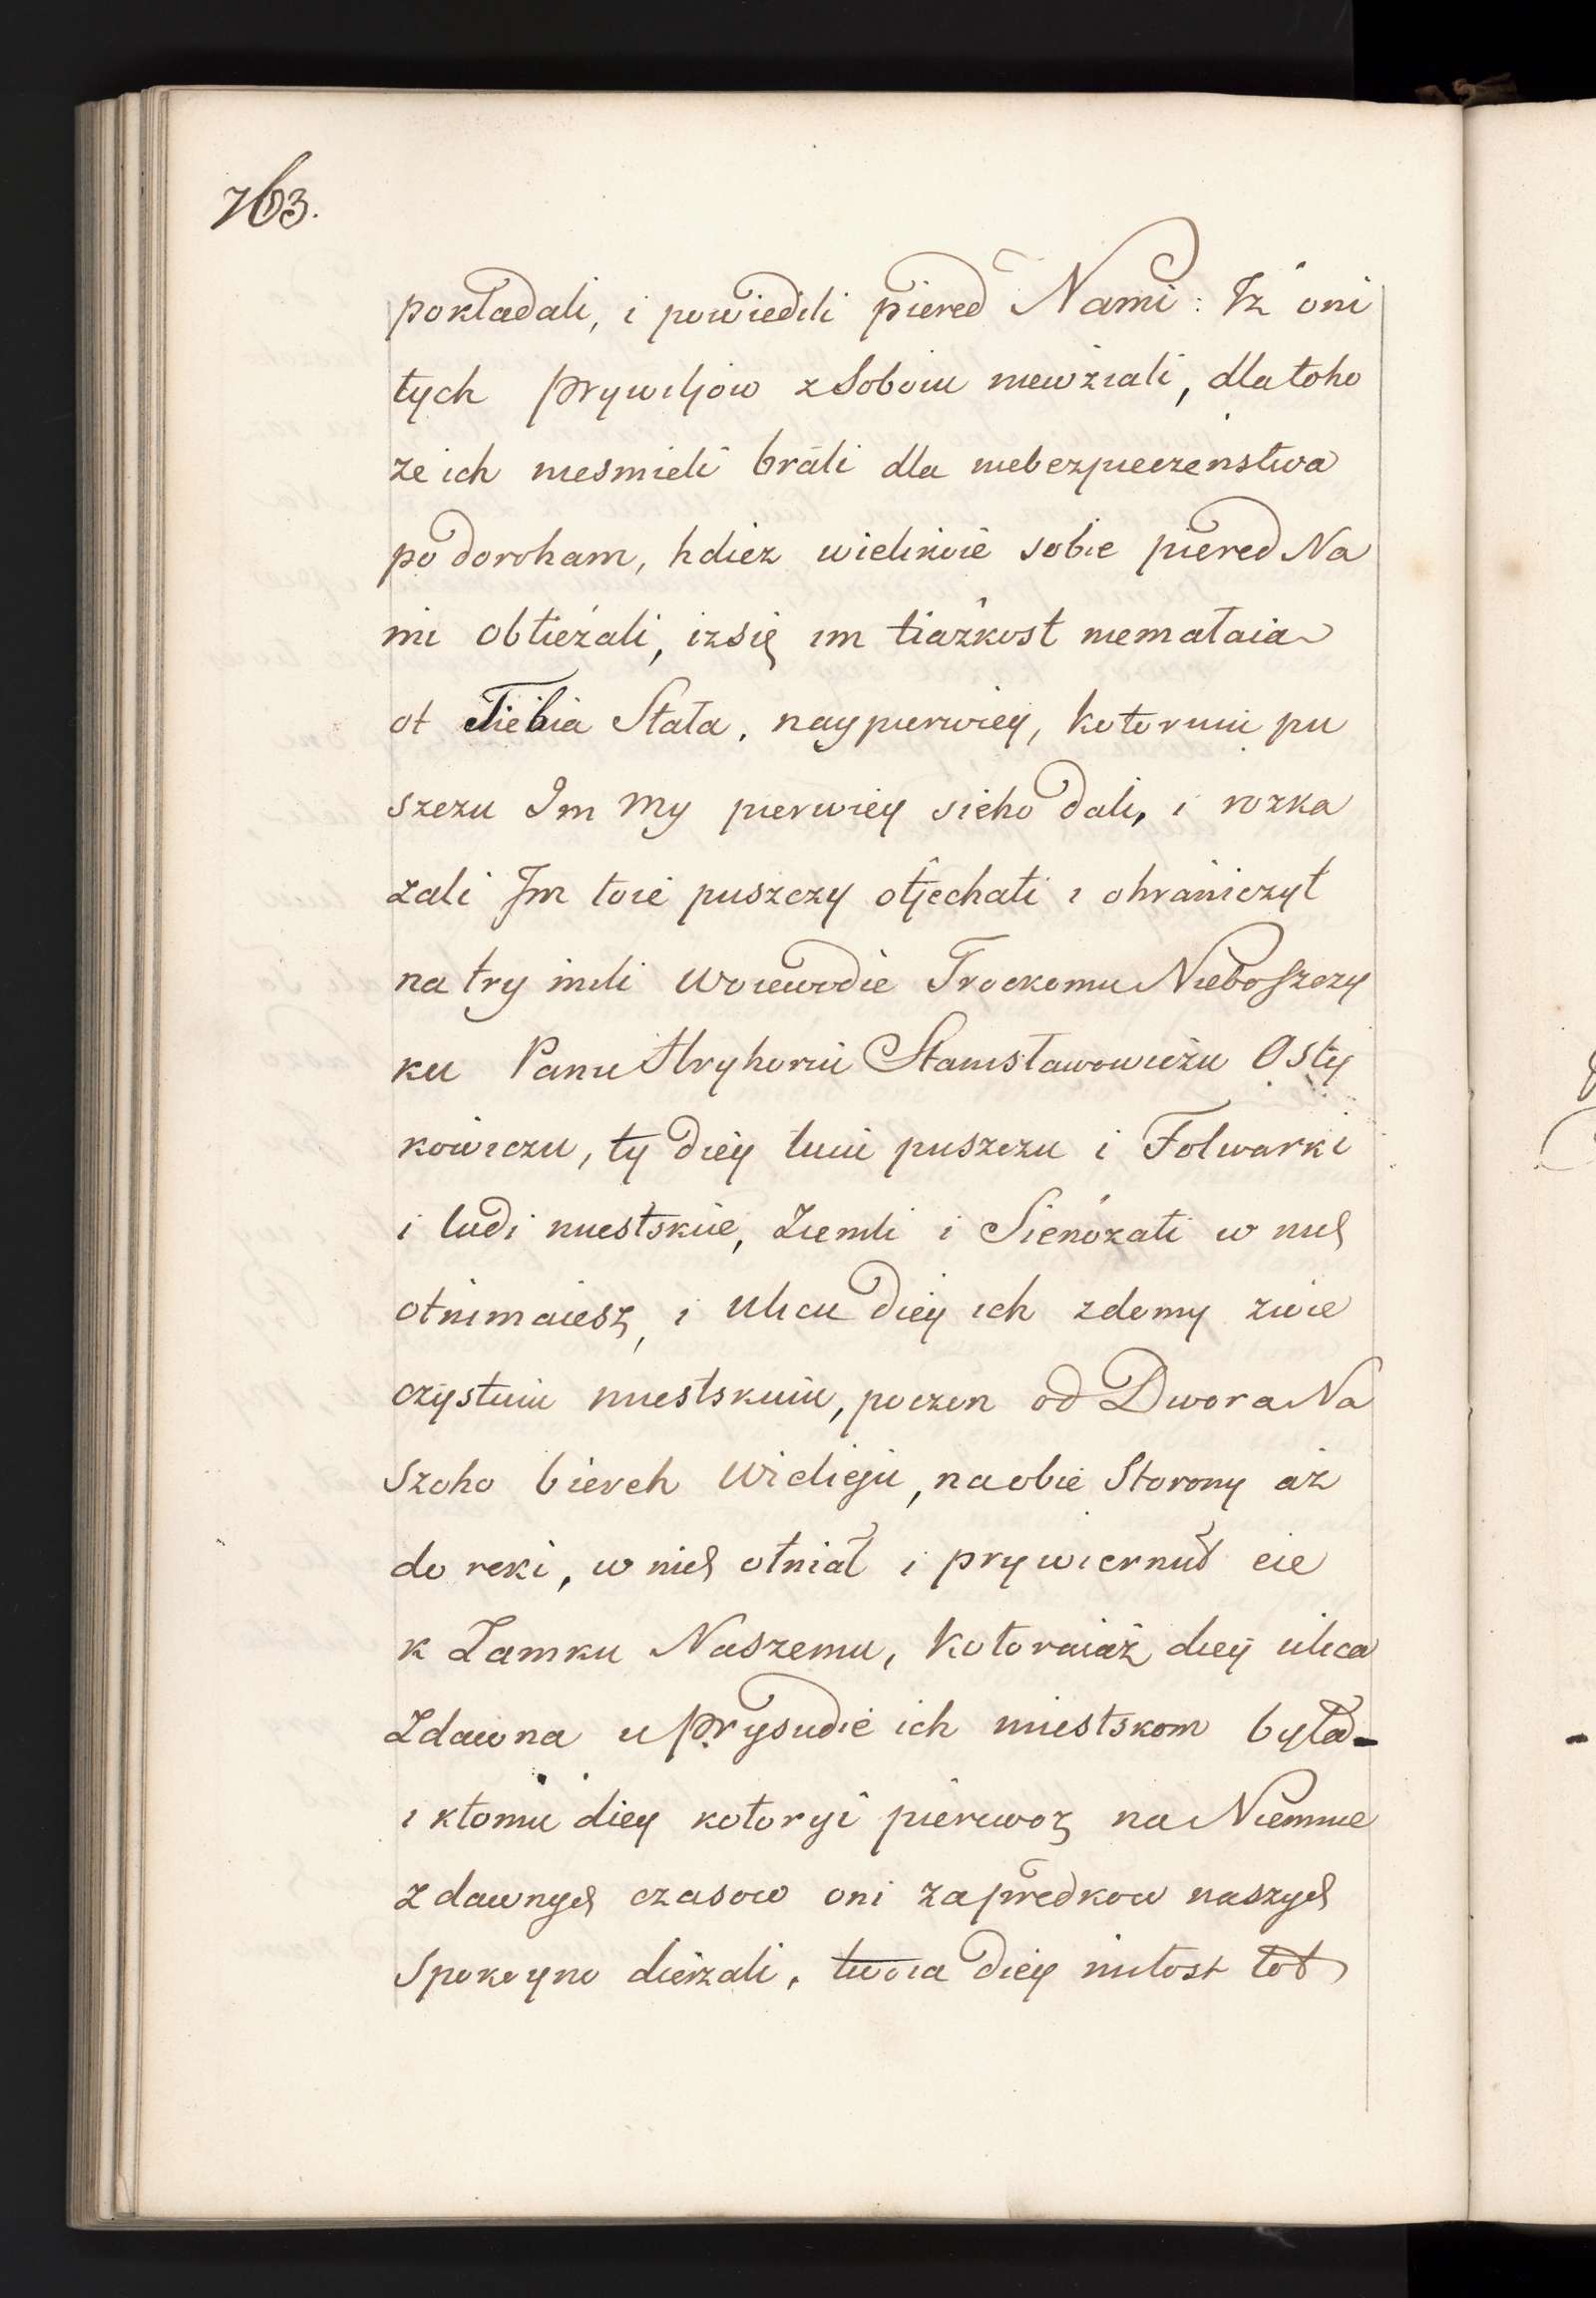 763.
pokładali, i powiedili piered Nami: Iż oni
tych prywiljow z Soboiu niewziali, dla toho
że ich niesmieli brali dla niebezpieczenstwa
po doroham, hdież wielikoie sobie piered Na
mi obtieżali, iż się im tiażkost niemałaia
ot Tiebia Stała. naypierwiey, kotoruiu pu
szczu Im My pierwiey sieho dali, i rozka
zali Im toie puszczy otjechati i ohraniczyt
na try mili Woiewodie Trockomu Nieboszczy
ku Panu Hryhoriu Stanisławowiczu Osty
kowiczu, ty diey tuiu puszczu i Folwarki
i ludi miestskiie, Ziemli i Sienożati w nich
otnimaiesz, i Ulicu diey ich z domy zwie
czystuiu miestskuiu, poczen od Dwora Na
szoho bierch Widieju, na obie Storony aż
do reki, w nich otniał i prywiernuł eie
k Zamku Naszemu, Kotoraiaż diey ulica
Zdawna u prysudie ich miestskom była-
i ktomu diey kotoryi pierewoz na Niemnie
Z dawnych czasow oni za predkow naszych
Spokoyno dierżali, twoia diey miłost tot